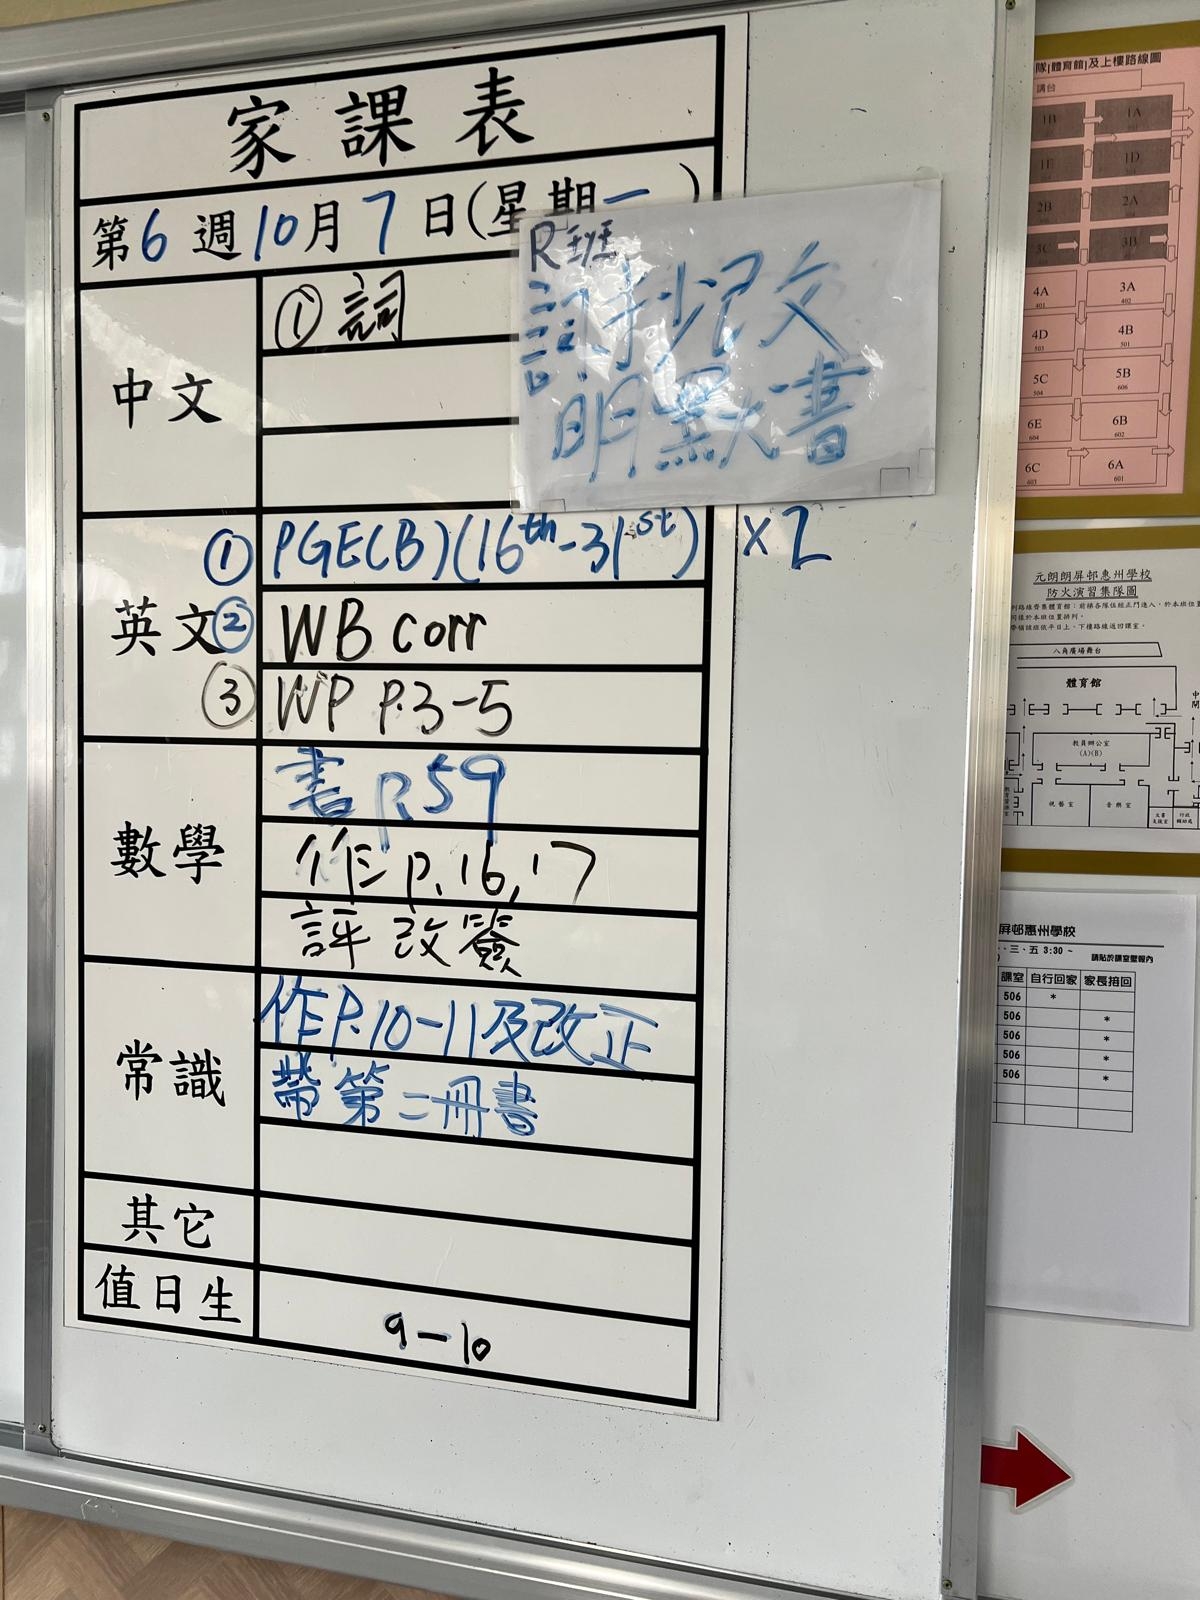 家課表
第6週10月7日(星期一)
R班
詞.手抄.記文
明默書
中文
①詞
英文
①PGE(B)(16th-31st) x2
②WB corr
③WP P.3-5
數學
書P.59
作P.16,17
評 改簽
常識
作P.10-11及改正
帶第二冊書
其它
值日生
9-10
隊[體育館]及上樓路線圖
講台
1B
1A
1E
1D
2B
2A
3C
3B
4A
401
3A
402
4D
503
4B
501
5C
504
5B
606
6E
604
6B
602
6C
603
6A
601
元朗朗屏邨惠州學校
防火演習集隊圖
八角廣場舞台
體育館
教員辦公室
(A)(B)
視藝室
音樂室
屏邨惠州學校
、三、五 3:30 ~
請貼於課室壁報內
課室 自行回家 家長接回
506 *
506 *
506 *
506 *
506 *